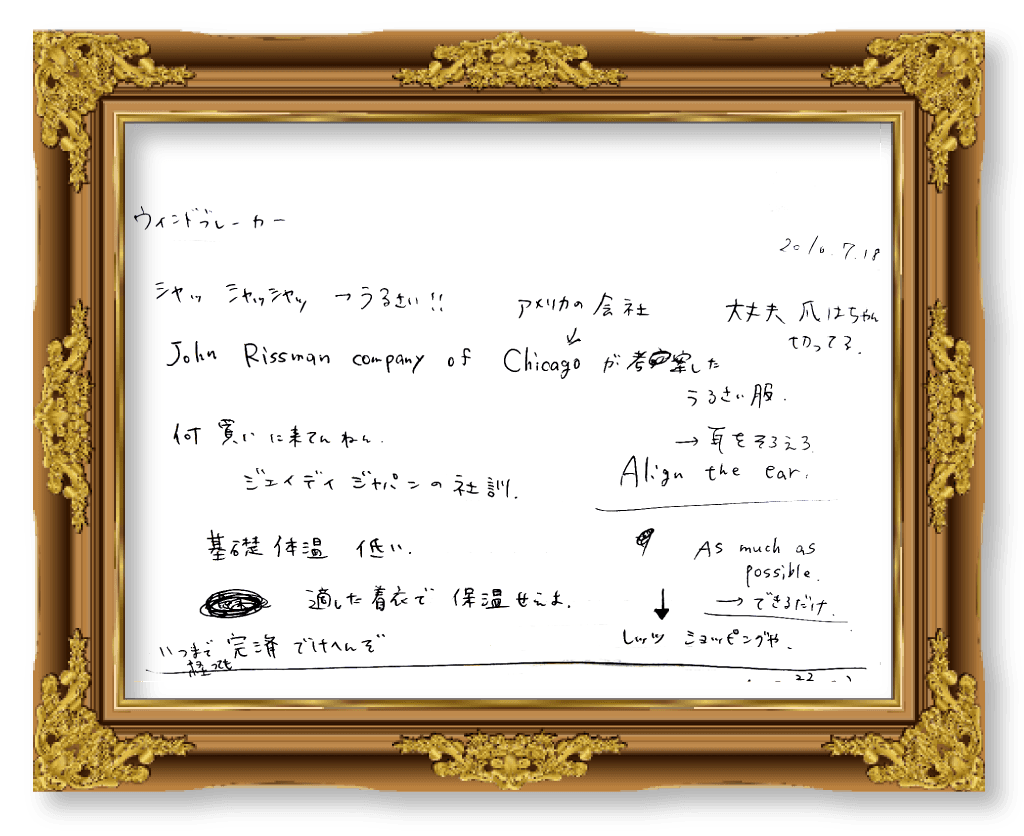 ウィンドブレーカー
2016.7.18
シャッ シャッシャッ →うるさい!!
アメリカの会社
大丈夫 爪はちゃん
切ってる.
John Rissman company of Chicago が考案した
うるさい服.
何買いに来てんねん.
→耳をそろえろ
Align the ear.
ジェイディジャパンの社訓.
基礎体温 低い.
As much as
possible.
適した着衣で 保温せえよ.
→できるだけ.
いつまで
経っても
完済 でけへんぞ
レッツ ショッピングや.
22